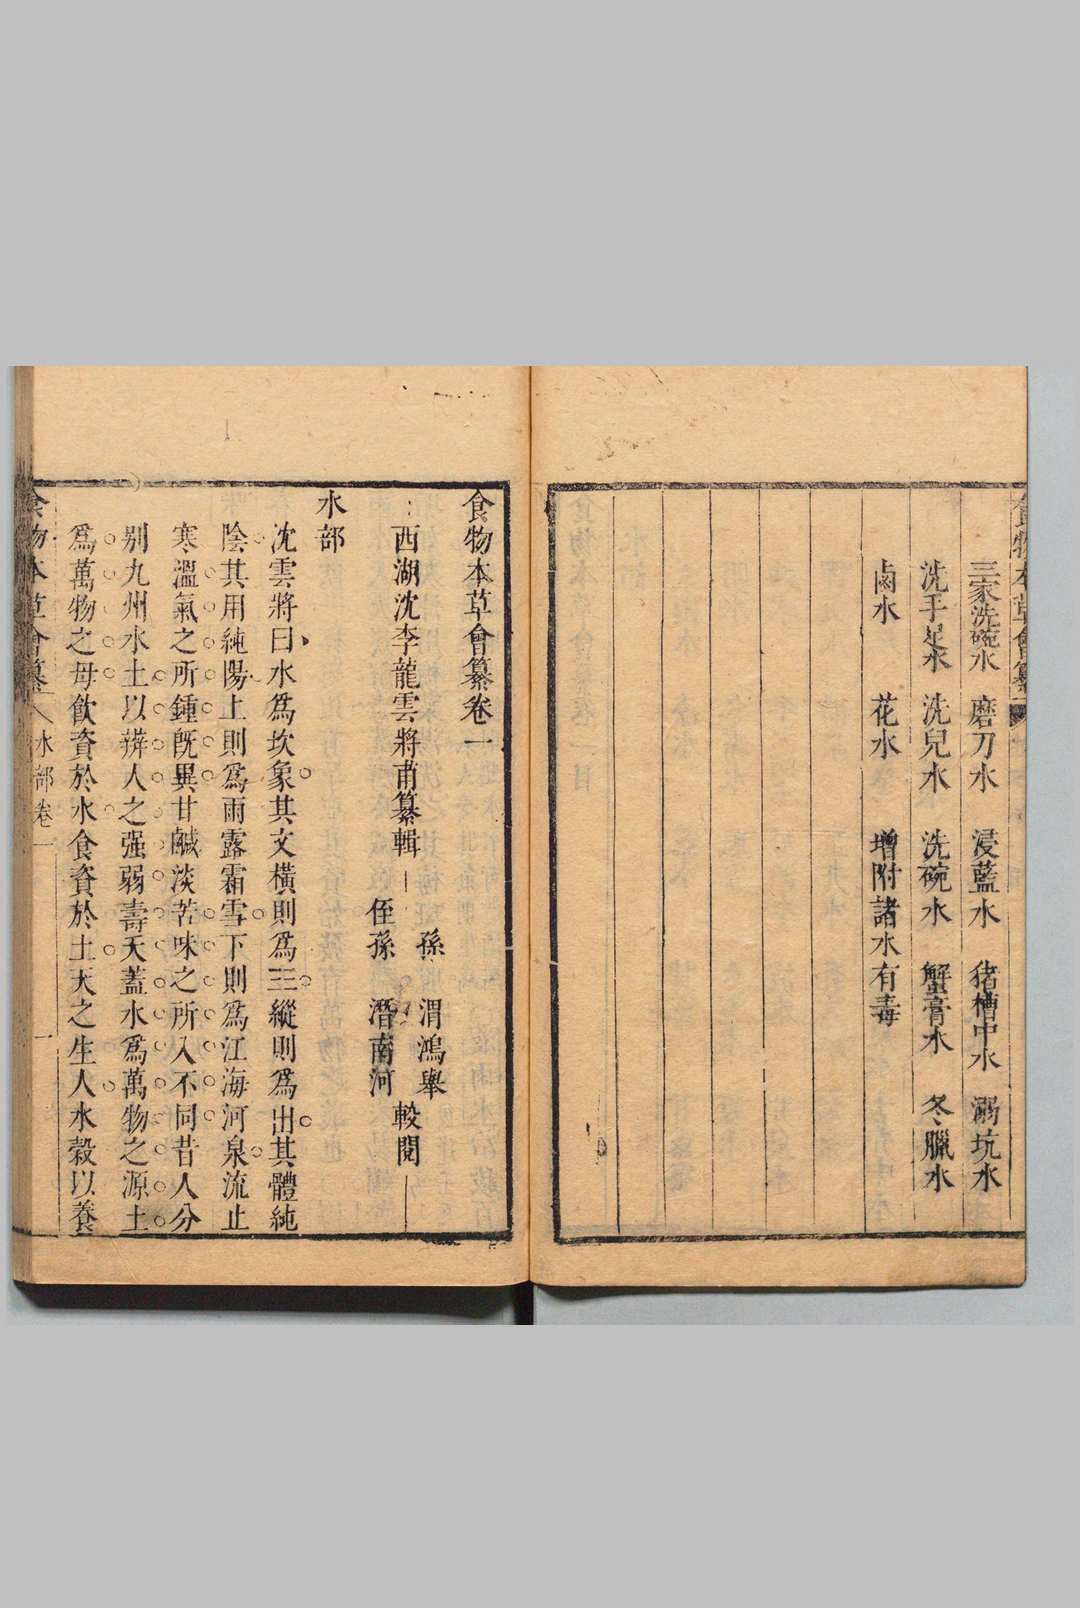 食物本草會纂
三家洗碗水 磨刀水 浸藍水 豬槽中水 溺坑水
洗手足水 洗兒水 洗碗水 蟹膏水 冬臘水
鹵水 花水 增附諸水有毒
食物本草會纂卷一
西湖沈李龍雲將甫纂輯
孫 渭鴻舉
侄孫 潛南河
較閱
水部
沈雲將曰水爲坎象其文橫則爲三縱則爲出其體純
陰其用純陽上則爲雨露霜雪下則爲江海河泉流止
寒溫氣之所鍾既異甘鹹淡苦味之所入不同昔人分
別九州水土以辨人之强弱壽夭蓋水爲萬物之源土
爲萬物之母飲資於水食資於土天之生人水穀以養
食物本草會纂 水部卷一 一